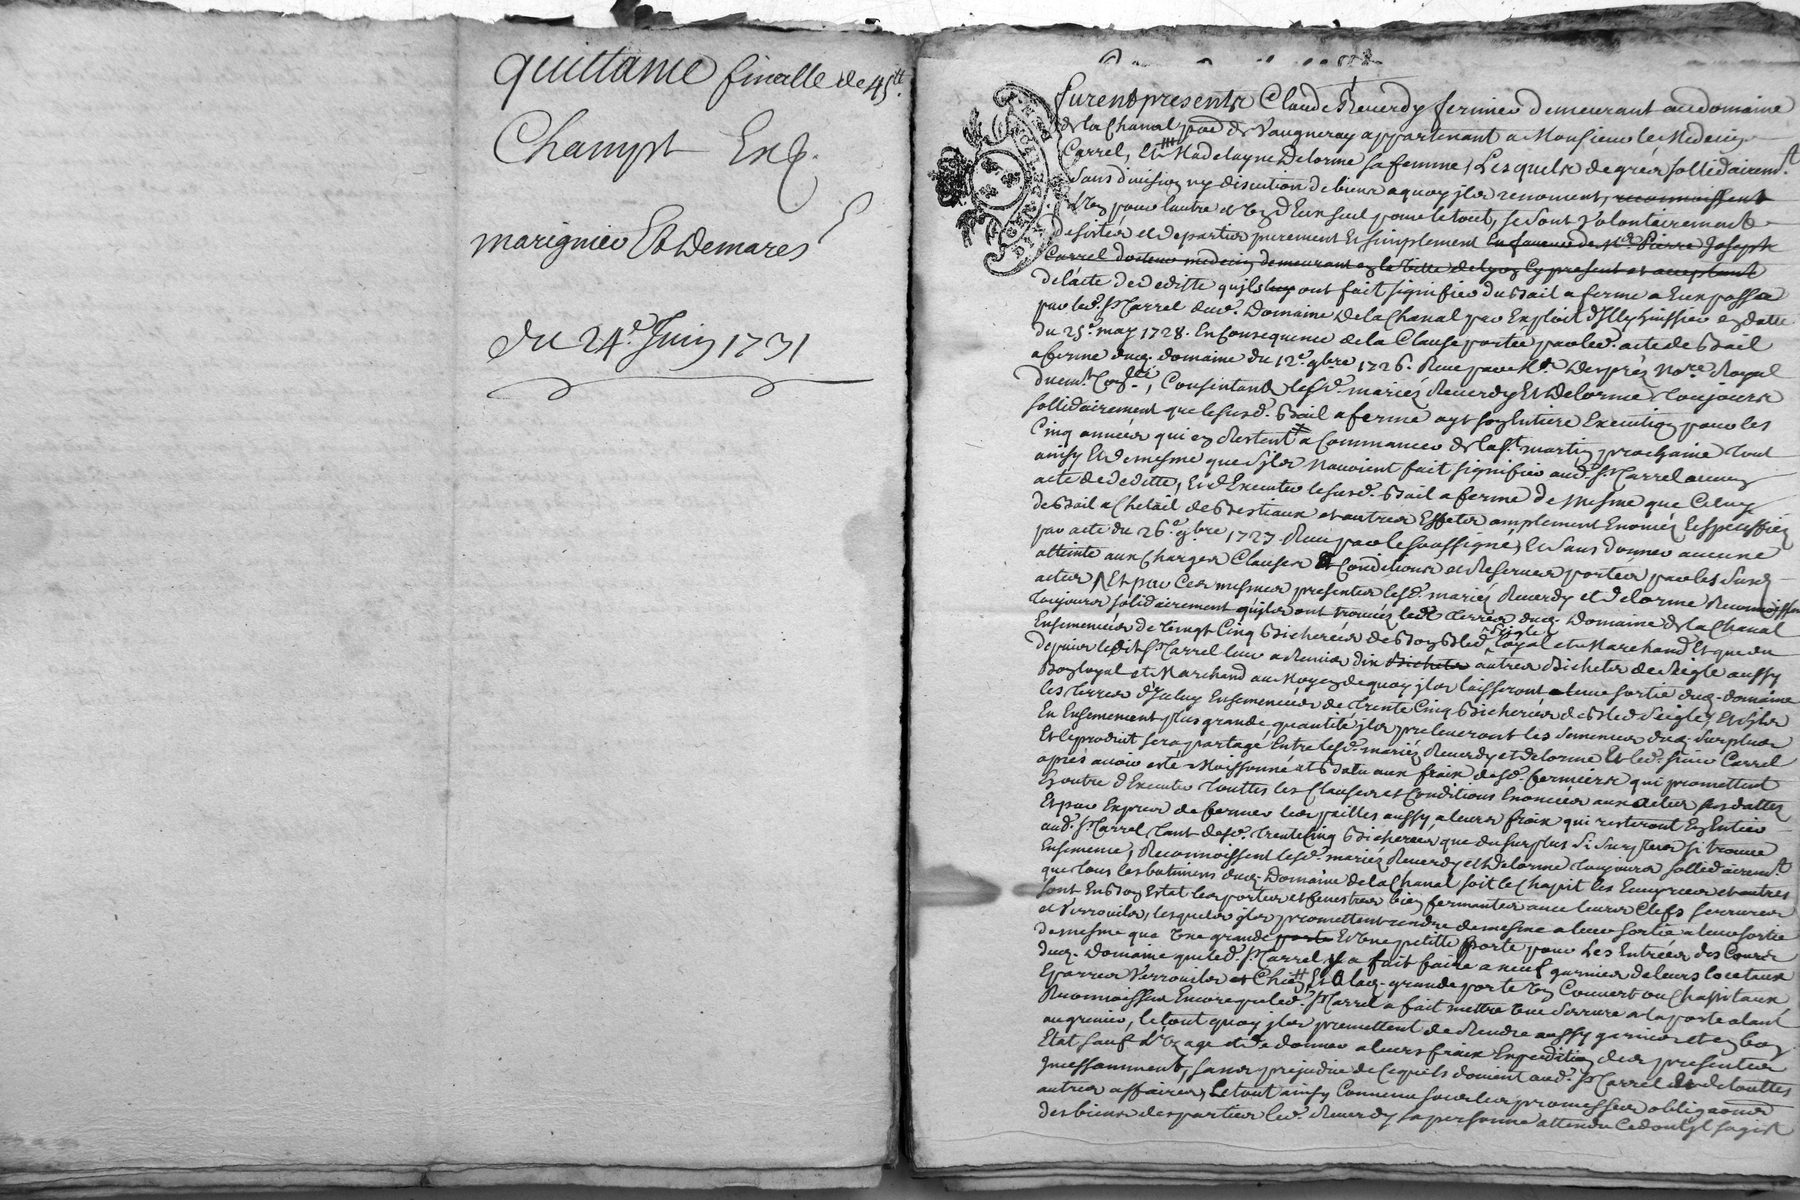 quittance finalle de 45tt.
Champt Exp.
marignier Et Demares
du 24e. Juin 1731
furent presents Claude Reuerdy fermier demeurant au domaine
de la Chanal parr. de Vaugneray appartenant a Monsieur le Medecin
Carrel, Et Madelayne Delorme sa femme, Lesquels de gréz sollidairemt.
sans division ny discution de biens a quoy ils renoncent, reconnoissent
l'un pour l'autre et un d'Eux seul pour le tout, se sont volontairement
desistés et departis purement Et simplement En faueur de Mr. Pierre Joseph
Carrel docteur medecin demeurant en la Ville de lyon Cy present et acceptant
de l'acte de deditte qu'ils luy ont fait signifier du Bail a ferme a Eux passé
par led. Sr. Carrel dud. Domaine de la Chanal par Exploit d'Illy huissier en datte
du 25e. may 1728. En Consequence de la Clause portée par led. acte de Bail
a ferme dud. domaine du 12e. 9bre 1726. Receu par Me. Desprez Nore. Royal
Consentants lesd. mariéz Reuerdy Et Delorme toujours
sollidairement que le susd. Bail a ferme ayt son Entiere Execution pour les
Cinq années qui en Restent a Commancer de la St. martin prochaine tout
ainsy Et de mesme que s'ils n'auoient fait signifier aud. Sr. Carrel aucun
acte de deditte, Et d'Executer le susd. Bail a ferme de mesme que Celuy
de Bail a Chetail de Bestiaux et autres Effets amplement Enoncéz Et speciffiéz
par acte du 26e. 9bre 1727. Receu par le soussigné, Et sans donner aucune
atteinte aux Charges Clauses Et Conditions et Reserues portées par les susd.
actes, Et par Ces mesmes presentes lesd. mariéz Reuerdy et Delorme Reconnoissent
toujours solidairement qu'ils ont trouuéz les terres dud. Domaine de la Chanal
Ensemencées de Vingt Cinq Bicherées de Bon Bled seigle loyal et Marchand Et que du
depuis ledit Sr. Carrel leur a Remis dix Bichets autres Bichets de seigle aussy
Bon loyal et Marchand au Moyen de quoy ils laisseront a leur sortie dud. domaine
les terres d'Iceluy Ensemencées de trente Cinq Bicherées de Bled seigle, Et s'ils
En Ensemencent plus grande quantité ils preleueront les semences dud. surplus
Et le produit sera partagé Entre lesd. mariéz Reuerdy et Delorme Et led. sieur Carrel
après auoir esté Moissonné et Batu aux fraix desd. fermiers qui promettent
En outre d'Executer touttes les Clauses et Conditions Enoncées aux actes sus dattés
Et par Exprès de fermer les pailles aussy a leurs fraix qui resteront En Entier
aud. Sr. Carrel tant desd. trente Cinq Bicherées que du surplus si surplus se trouue
Ensemencé, Reconnoissent lesd. mariéz Reuerdy et Delorme toujours sollidairemt.
que tous les batimens dud. Domaine de la Chanal soit le Chapit les Ecuyries et autres
sont En Bon Estat les portes et fenestres bien fermantes auec leurs Clefs serrures
et Verrouils, lesquels ils promettent rendre de mesme a leur sortie a leur sortie
de mesme que une grande porte Et une petitte porte pour Les Entrées des Cours
dud. Domaine que led. Sr. Carrel y a fait faire a neuf garnies de leurs loctaux
Eparres Verrouils et Et a lad. grande porte un Couuert ou Chapitaux
Reconnoissent Encore que led. Sr. Carrel a fait mettre une Serrure a la porte alant
au grenier, le tout quoy ils promettent de Rendre aussy garnies et en bon
Etat sauf l'uzage et de donner a leurs fraix Expedition des presentes
Incessamment, sans prejudice de Ce qu'ils doiuent aud. Sr. Carrel de touttes
autres affaires, Le tout ainsy Conuenu sous les promesses obligaons
des biens des parties led. Reuerdy sa personne attendu Ce dont Il sagist